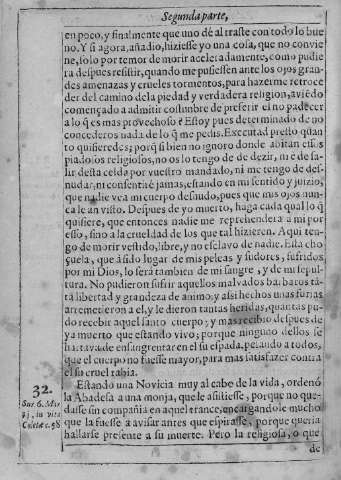 Segunda parte,
en poco, y finalmente que uno dè al traste con todo lo bue
no. Y si agora, añadio, hiziesse yo una cosa, que no convie
ne, solo por temor de morir aceleradamente, como pudie
ra despues resistir, quando me pusiessen ante los ojos gran
des amenazas y crueles tormentos, para hazerme retroce
der del camino de la piedad y verdadera religion, aviẽdo
començado a admitir costumbre de preferir el no padecer
a lo q̃ es mas provechoso? Estoy pues determinado de no
concederos nada de lo q̃ me pedis. Executad presto quan
to quisieredes; porq̃ si bien no ignoro donde abitan essos
piadosos religiosos, no os lo tengo de de dezir, ni e de sa-
lir desta celda por vuestro mandado, ni me tengo de des-
nudar, ni consentirè jamas, estando en mi sentido y juizio,
que nadie vea mi cuerpo desnudo, pues que mis ojos nun-
ca le an visto. Despues de yo muerto, haga cada qual lo q̃
quisiere, que entonces nadie me reprehenderà a mi por
esso, sino a la crueldad de los que tal hizieren. Aqui ten-
go de morir vestido, libre, y no esclavo de nadie. Esta cho
çuela, que à sido lugar de mis peleas y sudores, sufridos
por mi Dios, lo serà tambien de mi sangre, y de mi sepul-
tura. No pudieron sufrir aquellos malvados barbaros tã-
tã libertad y grandeza de animo; y assi hechos unas furias
arremetieron a el, y le dieron tantas heridas, quantas pu-
do recebir aquel santo cuerpo; y mas recibio despues de
ya muerto que estando vivo; porque ninguno dellos se
hartava de ensangrentar en el su espada, pesando a todos,
que el cuerpo no fuesse mayor, para mas satisfazer contra
el su cruel rabia.
32. Estando una Novicia muy al cabo de la vida, ordenò
la Abadesa a una monja, que le asistiesse, porque no que-
dasse sin compañia en aquel trance, encargandole mucho
que la fuesse a avisar antes que espirasse, porque queria
hallarse presente a su muerte. Pero la religiosa, o que
Sur. 6. Mar
tij, in vita
Coletæ c. 98
de